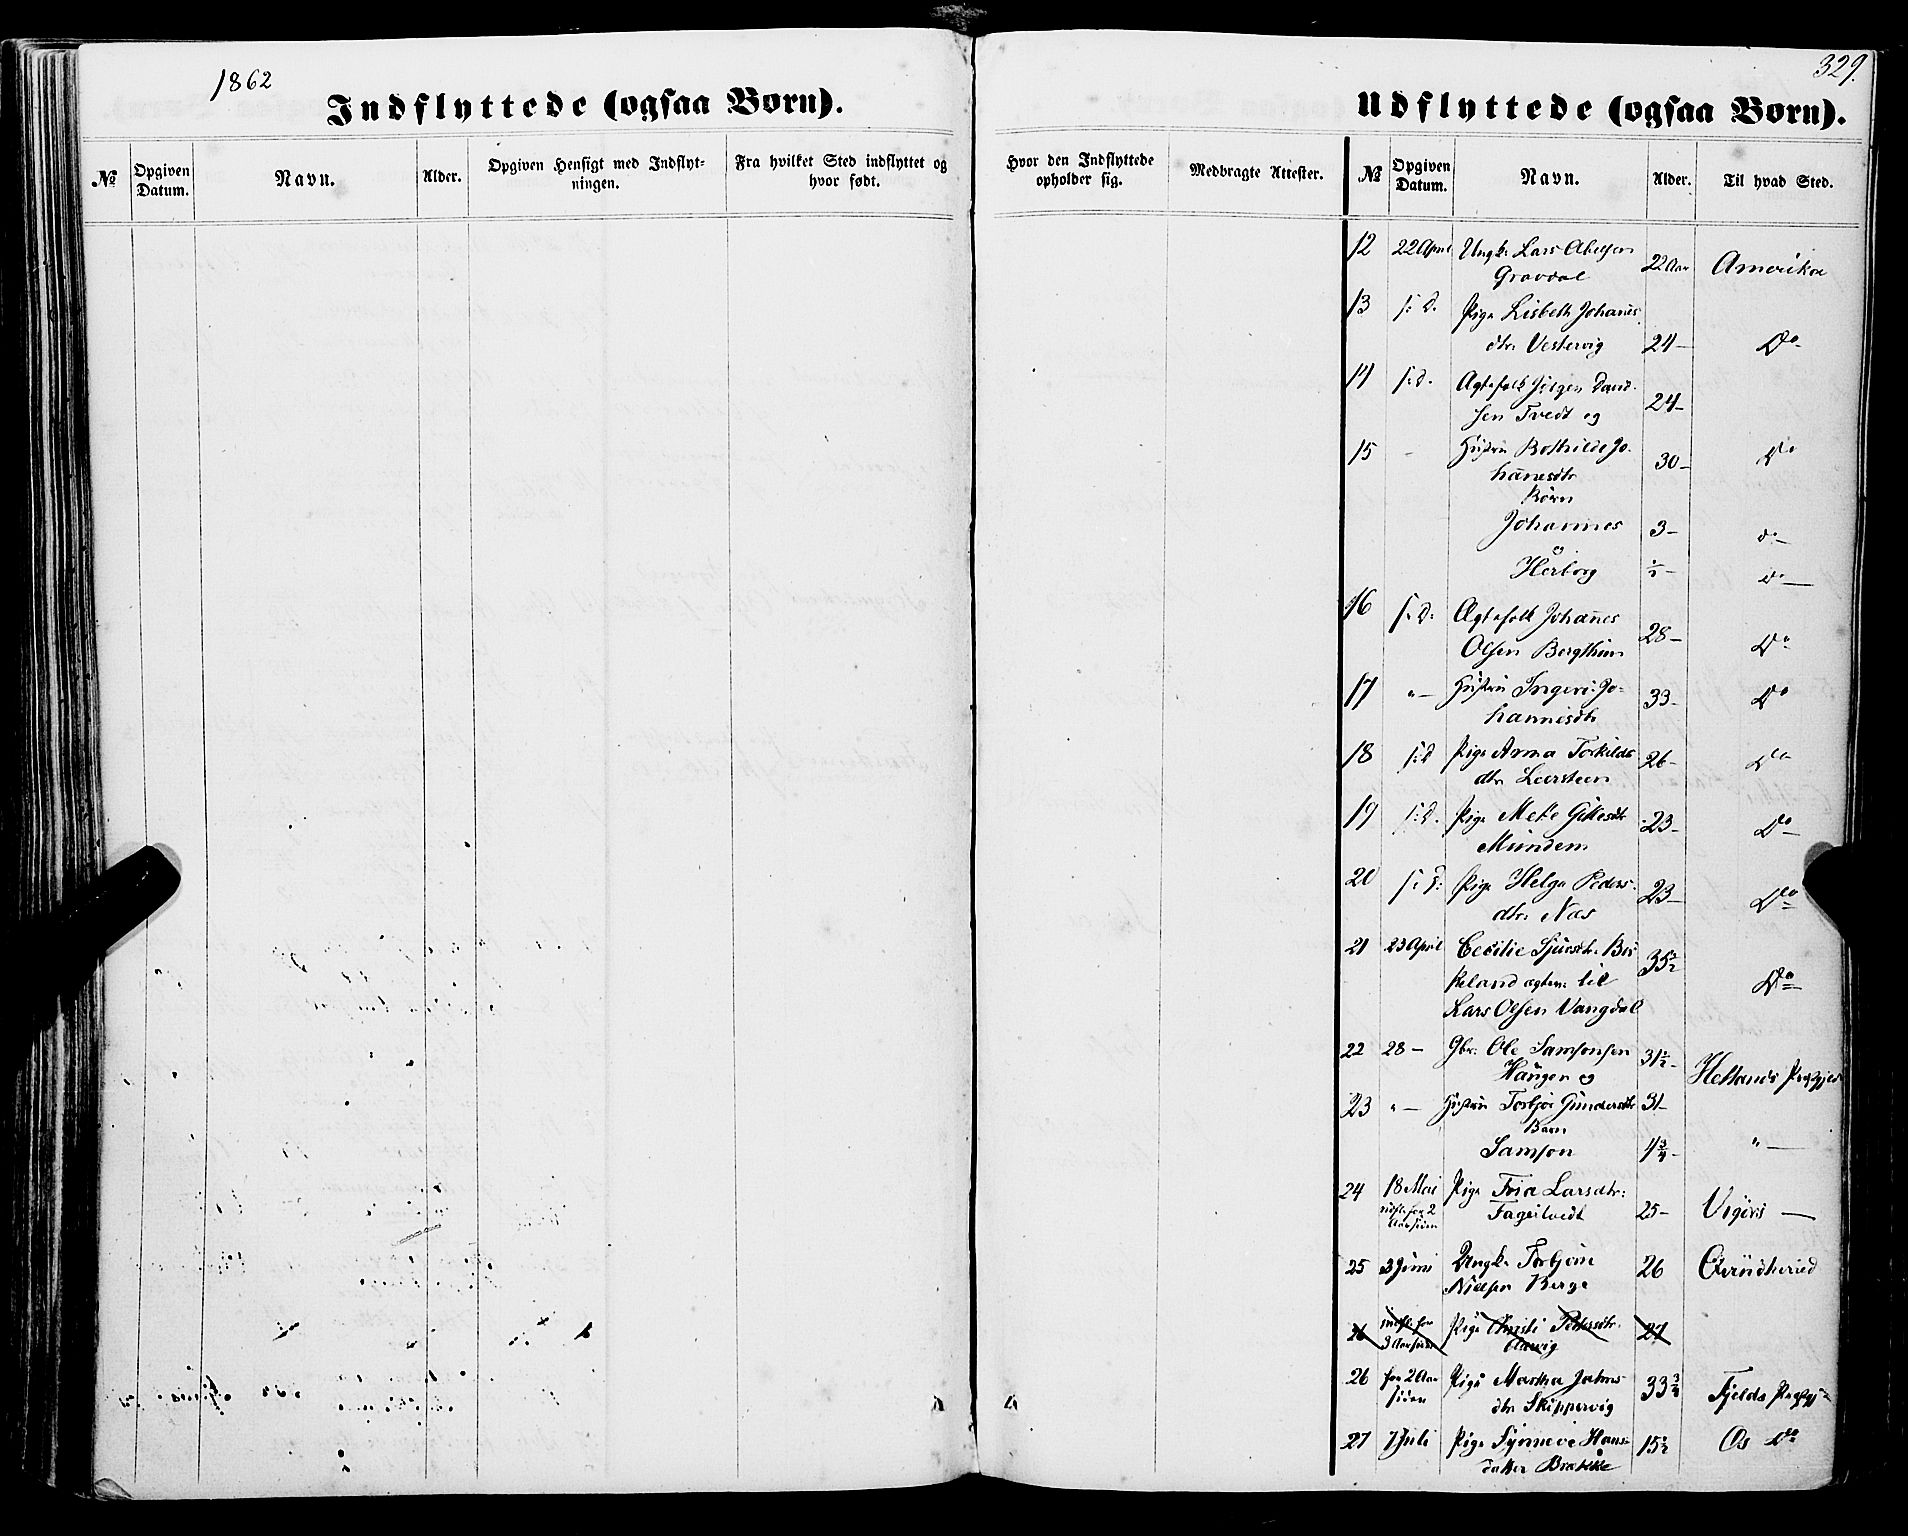 1862
329.
Indflyttede (ogsaa Børn).
Udflyttede (ogsaa Børn).
№ Opgiven Datum. Navn. Alder. Opgiven Hensigt med Indflyt-
ningen. Fra hvilket Sted indflyttet og
hvor født. Hvor den Indflyttede
opholder sig. Medbragte Attester. № Opgiven Datum. Navn. Alder. Til hvad Sted.
12 22 April Ungk. Lars Abelsen
Gravdal 22 Aar Amerika
13 s: d. Pige Lisbeth Johanes
dtr. Vestervig 24 — Do
14 s: d. Ægtefolk Jørgen David-
sen Tvedt og 24 —
15 Hustru Bothilde Jo-
hanesdtr 30 — Do
Børn
Johannes 3 — do —
Herborg do —
16 s: d: Ægtefolk Johanes
Olsen Bergthun 28 — Do
17 " — Hustru Ingeri Jo-
hannesdtr 33 — Do
18 s: d Pige Anna Torkilds
dtr. 26 — Do
19 s: d. Pige Mete Gittesdtr
Mundem 23 — Do —
20 s: d: Pige Helga Peders-
dtr. Næs 23 — Do
21 23 April Cecilie Sjursdtr. Bir
keland ægtem. til 35½ Do
Lars Olsen Vangdal
22 28 — Gbr. Ole Samsonsen
Haugen og 31½ — Præstgjeld
23 " — Hustru Torbjør Gundersdtr 31 —
Barn
Samson 4¾ — " —
24 18 Mai Pige Larsdtr:
for 2
Aar siden 25 — Vigørs —
25 3 Juni Ungk. Torbjørn
Nielsen Berge 26 Qvindherred
26 for
3 Aar siden Pige Christi Pedersdtr.
27
26 for 2 Aar
siden Pige Martha Johns-
dtr Skippervig 33¾ Fjelds Præstgj
27 7 Juli Pige Synneve Hans-
datter 15½ Os Do